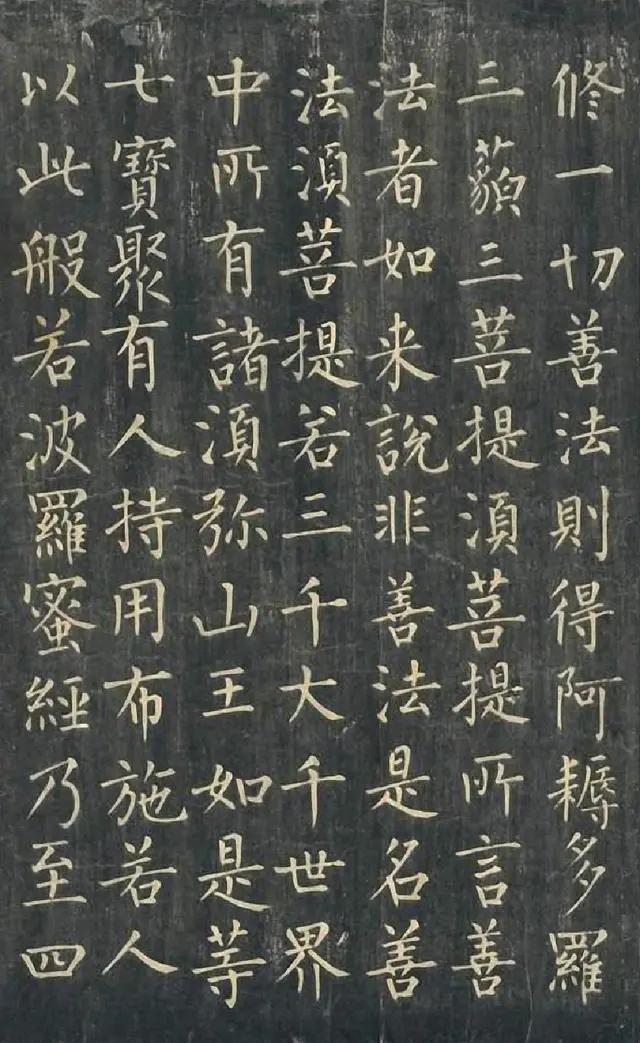 修一切善法則得阿耨多羅
三藐三菩提須菩提所言善
法者如来說非善法是名善
法須菩提若三千大千世界
中所有諸須弥山王如是等
七寳聚有人持用布施若人
以此般若波羅蜜經乃至四